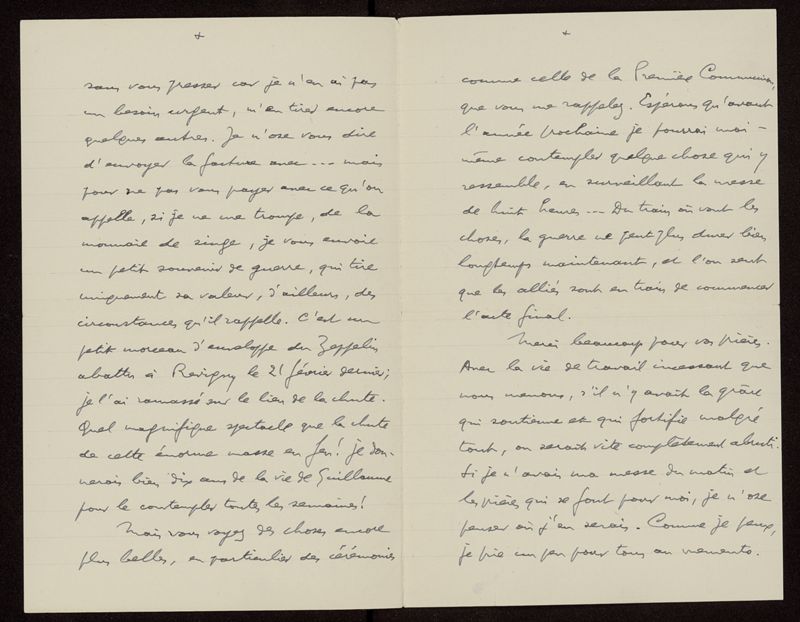 +
sans vous presser car je n'en ai pas
un besoin urgent, m'en tirer encore
quelques autres. Je n'ose vous dire
d'envoyer la facture avec --- mais
pour ne pas vous payer avec ce qu'on
appelle, si je ne me trompe, de la
monnaie de singe, je vous envoie
un petit souvenir de guerre, qui tire
uniquement sa valeur, d'ailleurs, des
circonstances qu'il rappelle. C'est un
petit morceau d'enveloppe du Zeppelin
abattu à Revigny le 21 février dernier;
je l'ai ramassé sur le lieu de la chute.
Quel magnifique spectacle que la chute
de cette énorme masse en feu! je don-
nerais bien dix ans de la vie de Guillaume
pour le contempler toutes les semaines!
Mais vous voyez des choses encore
plus belles, en particulier des cérémonies
+
comme celle de la Première Communion,
que vous me rappelez. Espérons qu'avant
l'année prochaine je pourrai moi-
même contempler quelque chose qui y
ressemble, en surveillant la messe
de huit heures --- Du train où vont les
choses, la guerre ne peut plus durer bien
longtemps maintenant, et l'on sent
que les alliés sont en train de commencer
l'acte final.
Merci beaucoup pour vos prières.
Avec la vie de travail incessant que
nous menons, s'il n'y avait la grâce
qui soutienne et qui fortifie malgré
tout, on serait vite complètement abruti.
Si je n'avais ma messe du matin et
les prières qui se font pour moi, je n'ose
penser où j'en serais. Comme je peux,
je prie un peu pour tous au memento.